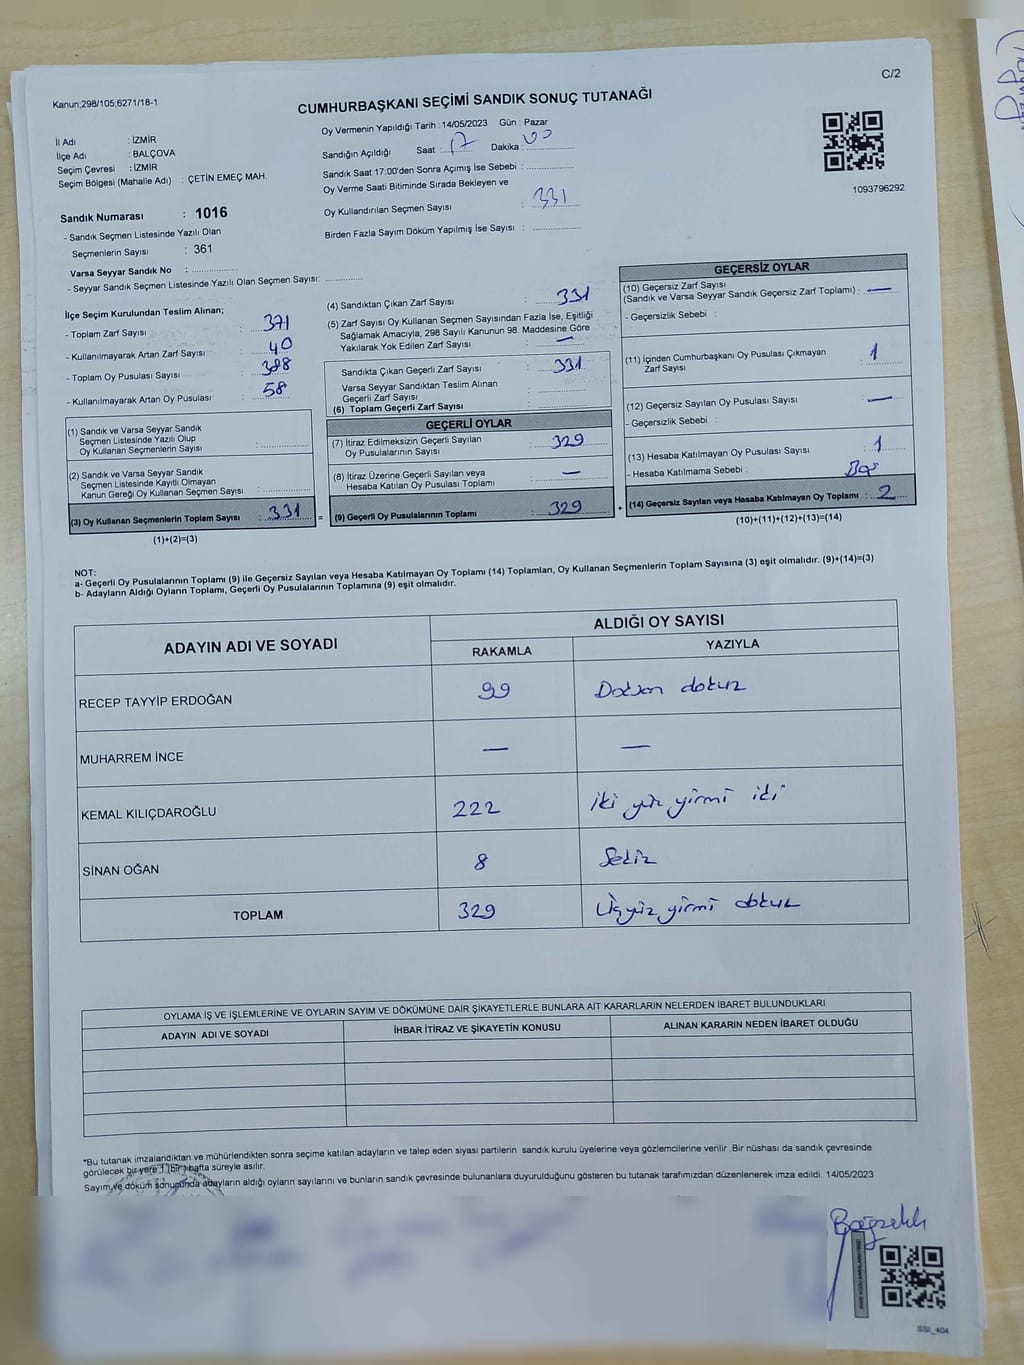 C/2
Kanun;298/105;6271/18-1
CUMHURBAŞKANI SEÇİMİ SANDIK SONUÇ TUTANAĞI
İl Adı : İZMİR
İlçe Adı : BALÇOVA
Seçim Çevresi : İZMİR
Seçim Bölgesi (Mahalle Adı) : ÇETİN EMEÇ MAH.
Sandık Numarası : 1016
- Sandık Seçmen Listesinde Yazılı Olan
Seçmenlerin Sayısı : 361
Varsa Seyyar Sandık No :
- Seyyar Sandık Seçmen Listesinde Yazılı Olan Seçmen Sayısı:
Oy Vermenin Yapıldığı Tarih : 14/05/2023 Gün : Pazar
Sandığın Açıldığı Saat : 17 Dakika : 00
Sandık Saat 17:00'den Sonra Açımış İse Sebebi :
Oy Verme Saati Bitiminde Sırada Bekleyen ve
Oy Kullandırılan Seçmen Sayısı : 331
Birden Fazla Sayım Döküm Yapılmış İse Sayısı :
1093796292
İlçe Seçim Kurulundan Teslim Alınan;
- Toplam Zarf Sayısı : 371
- Kullanılmayarak Artan Zarf Sayısı : 40
- Toplam Oy Pusulası Sayısı : 388
- Kullanılmayarak Artan Oy Pusulası : 58
(1) Sandık ve Varsa Seyyar Sandık
Seçmen Listesinde Yazılı Olup
Oy Kullanan Seçmenlerin Sayısı :
(2) Sandık ve Varsa Seyyar Sandık
Seçmen Listesinde Kayıtlı Olmayan
Kanun Gereği Oy Kullanan Seçmen Sayısı :
(3) Oy Kullanan Seçmenlerin Toplam Sayısı : 331 =
(1)+(2)=(3)
(4) Sandıktan Çıkan Zarf Sayısı : 331
(5) Zarf Sayısı Oy Kullanan Seçmen Sayısından Fazla İse, Eşitliği
Sağlamak Amacıyla; 298 Sayılı Kanunun 98. Maddesine Göre
Yakılarak Yok Edilen Zarf Sayısı : —
Sandıkta Çıkan Geçerli Zarf Sayısı : 331
Varsa Seyyar Sandıktan Teslim Alınan
Geçerli Zarf Sayısı :
(6) Toplam Geçerli Zarf Sayısı :
GEÇERLİ OYLAR
(7) İtiraz Edilmeksizin Geçerli Sayılan
Oy Pusulalarının Sayısı : 329
(8) İtiraz Üzerine Geçerli Sayılan veya
Hesaba Katılan Oy Pusulası Toplamı : —
(9) Geçerli Oy Pusulalarının Toplamı : 329 +
GEÇERSİZ OYLAR
(10) Geçersiz Zarf Sayısı
(Sandık ve Varsa Seyyar Sandık Geçersiz Zarf Toplamı) : —
- Geçersizlik Sebebi :
(11) İçinden Cumhurbaşkanı Oy Pusulası Çıkmayan
Zarf Sayısı : 1
(12) Geçersiz Sayılan Oy Pusulası Sayısı : —
- Geçersizlik Sebebi :
(13) Hesaba Katılmayan Oy Pusulası Sayısı : 1
- Hesaba Katılmama Sebebi : Boş
(14) Geçersiz Sayılan veya Hesaba Katılmayan Oy Toplamı : 2
(10)+(11)+(12)+(13)=(14)
NOT:
a- Geçerli Oy Pusulalarının Toplamı (9) ile Geçersiz Sayılan veya Hesaba Katılmayan Oy Toplamı (14) Toplamları, Oy Kullanan Seçmenlerin Toplam Sayısına (3) eşit olmalıdır. (9)+(14)=(3)
b- Adayların Aldığı Oyların Toplamı, Geçerli Oy Pusulalarının Toplamına (9) eşit olmalıdır.
ADAYIN ADI VE SOYADI ALDIĞI OY SAYISI
RAKAMLA YAZIYLA
RECEP TAYYİP ERDOĞAN 99 Doksan dokuz
MUHARREM İNCE — —
KEMAL KILIÇDAROĞLU 222 iki yüz yirmi iki
SİNAN OĞAN 8 Sekiz
TOPLAM 329 Üçyüz yirmi dokuz
OYLAMA İŞ VE İŞLEMLERİNE VE OYLARIN SAYIM VE DÖKÜMÜNE DAİR ŞİKAYETLERLE BUNLARA AİT KARARLARIN NELERDEN İBARET BULUNDUKLARI
ADAYIN ADI VE SOYADI İHBAR İTİRAZ VE ŞİKAYETİN KONUSU ALINAN KARARIN NEDEN İBARET OLDUĞU
*Bu tutanak imzalandıktan ve mühürlendikten sonra seçime katılan adayların ve talep eden siyasi partilerin sandık kurulu üyelerine veya gözlemcilerine verilir .Bir nüshası da sandık çevresinde
görülecek bir yere 1 (bir) hafta süreyle asılır.
Sayım ve döküm sonucunda adayların aldığı oyların sayılarını ve bunların sandık çevresinde bulunanlara duyurulduğunu gösteren bu tutanak tarafımızdan düzenlenerek imza edildi. 14/05/2023
SSI_404